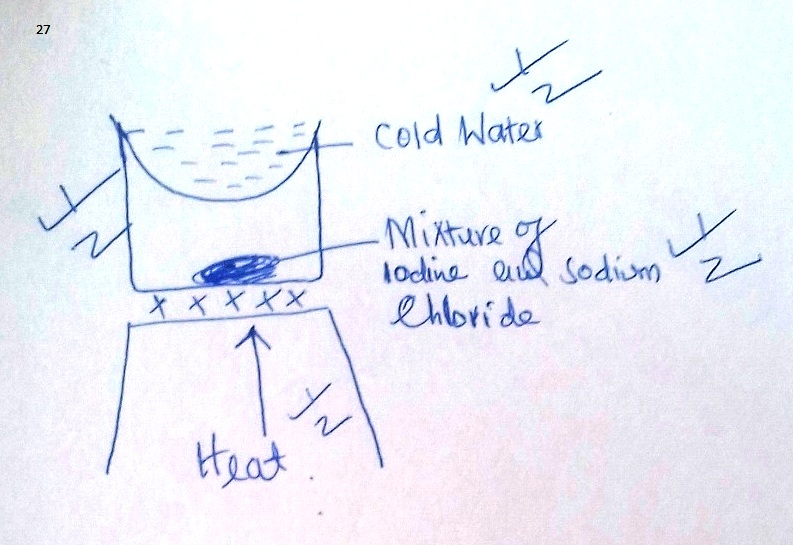 27
✓ 1/2
Cold Water
✓ 1/2
Mixture of
iodine and sodium ✓ 1/2
Chloride
x x x x x
✓ 1/2
Heat